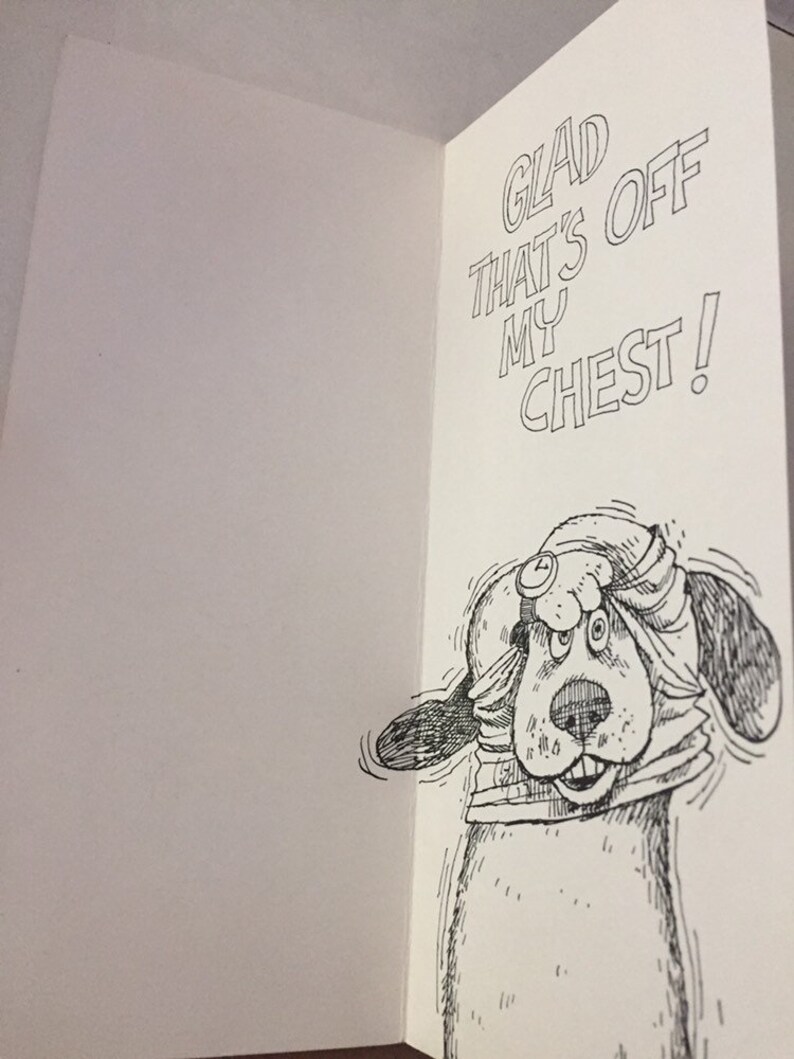 GLAD
THAT'S OFF
MY
CHEST!